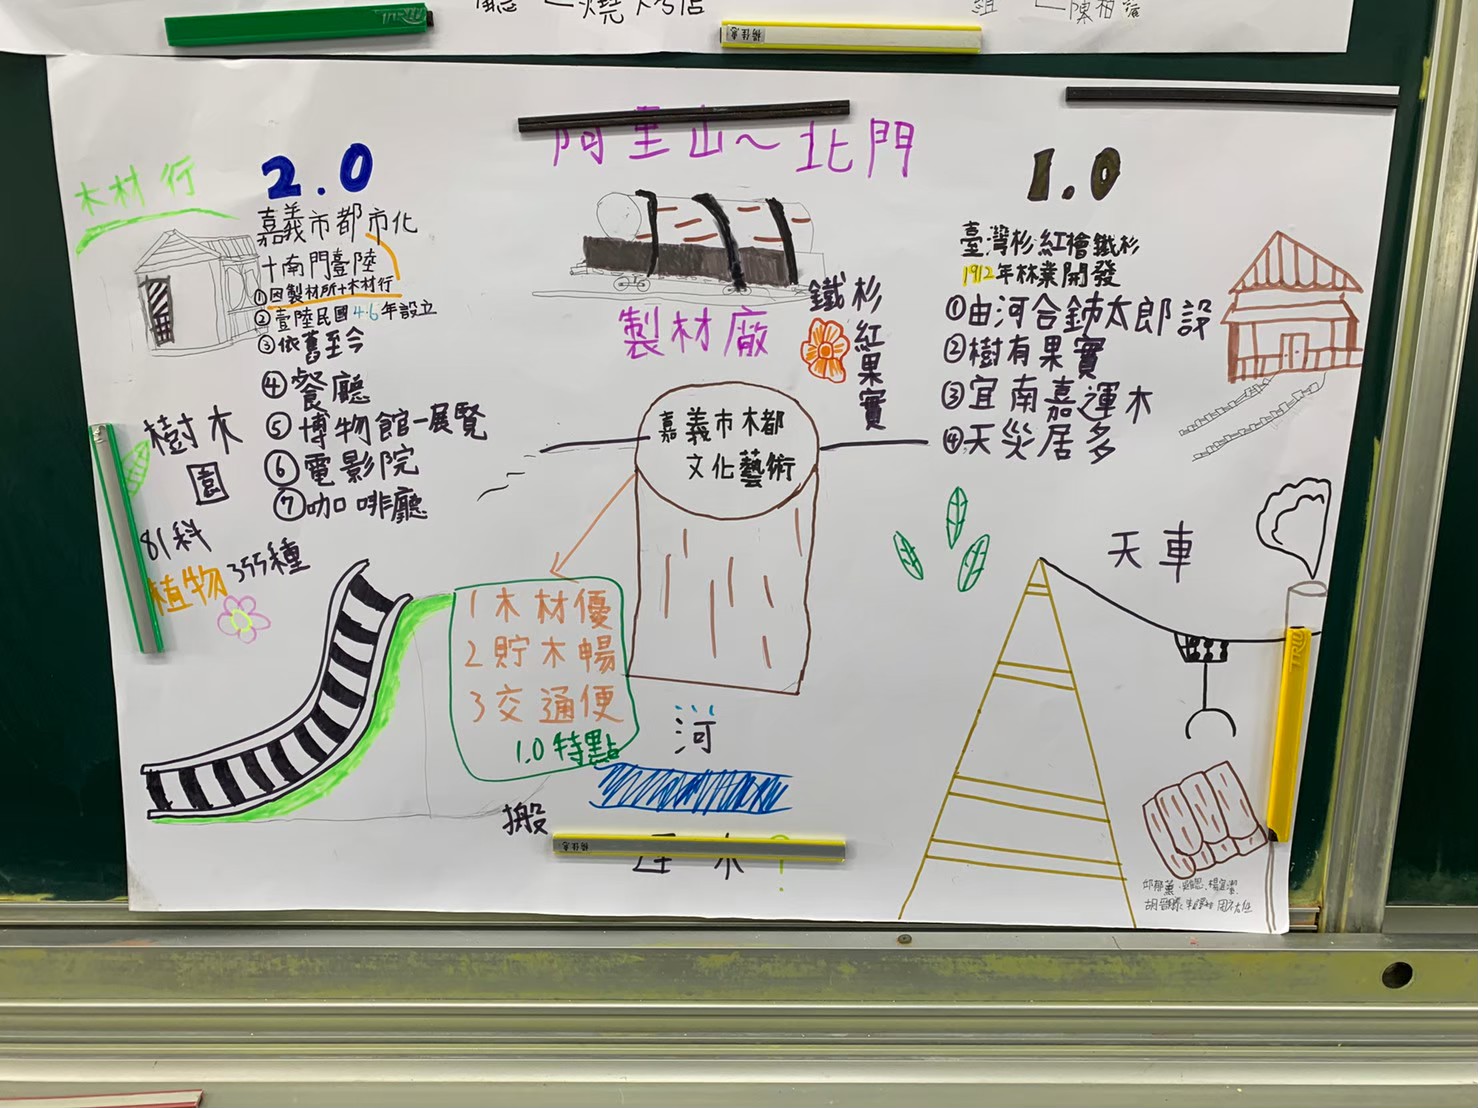 阿里山~北門
製材廠
鐵杉
紅果實
木材行
2.0
嘉義市都市化
十南門壹陸
①因製材所+木材行
②壹陸民國46年設立
③依舊至今
④餐廳
⑤博物館-展覽
⑥電影院
⑦咖啡廳
樹木
園
81科
植物355種
嘉義市木都
文化藝術
1木材優
2貯木暢
3交通便
1.0特點
河
搬
?
1.0
臺灣杉紅檜鐵杉
1912年林業開發
①由河合鈰太郎設
②樹有果實
③宜南嘉運木
④天災居多
天車
TRIU
楊佳惠
楊佳惠
TRIU